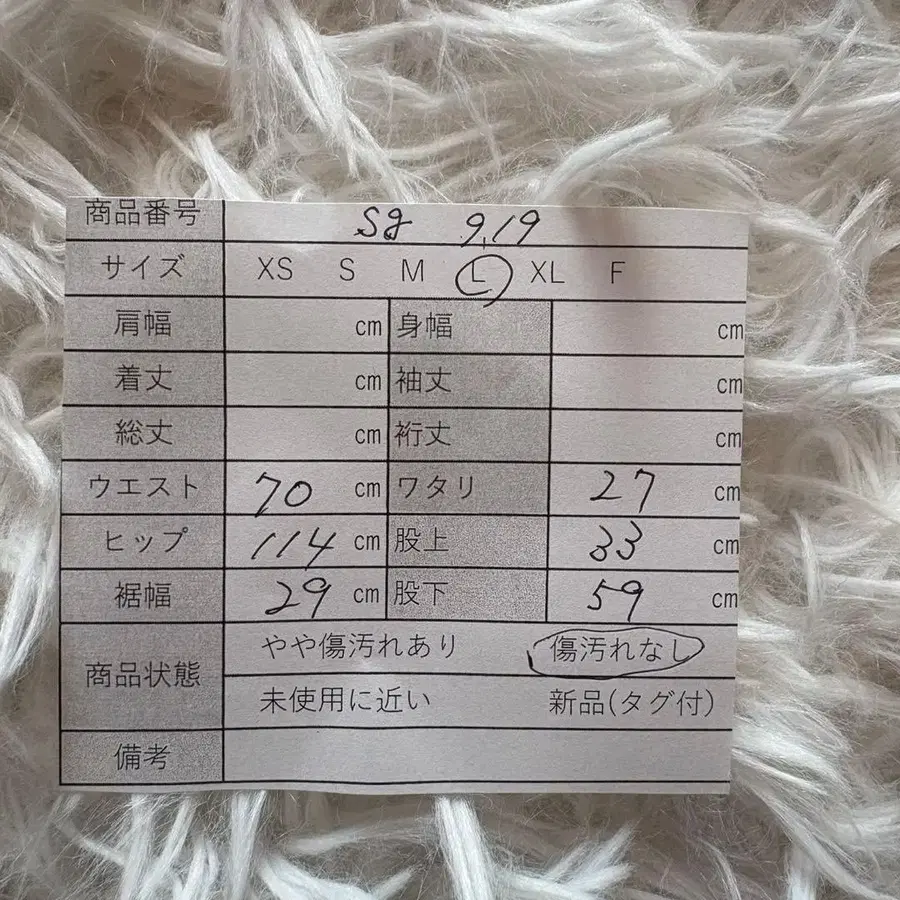 商品番号 sg 9,19
サイズ XS S M L XL F
肩幅 cm 身幅 cm
着丈 cm 袖丈 cm
総丈 cm 裄丈 cm
ウエスト 70 cm ワタリ 27 cm
ヒップ 114 cm 股上 33 cm
裾幅 29 cm 股下 59 cm
商品状態 やや傷汚れあり 傷汚れなし
未使用に近い 新品(タグ付)
備考